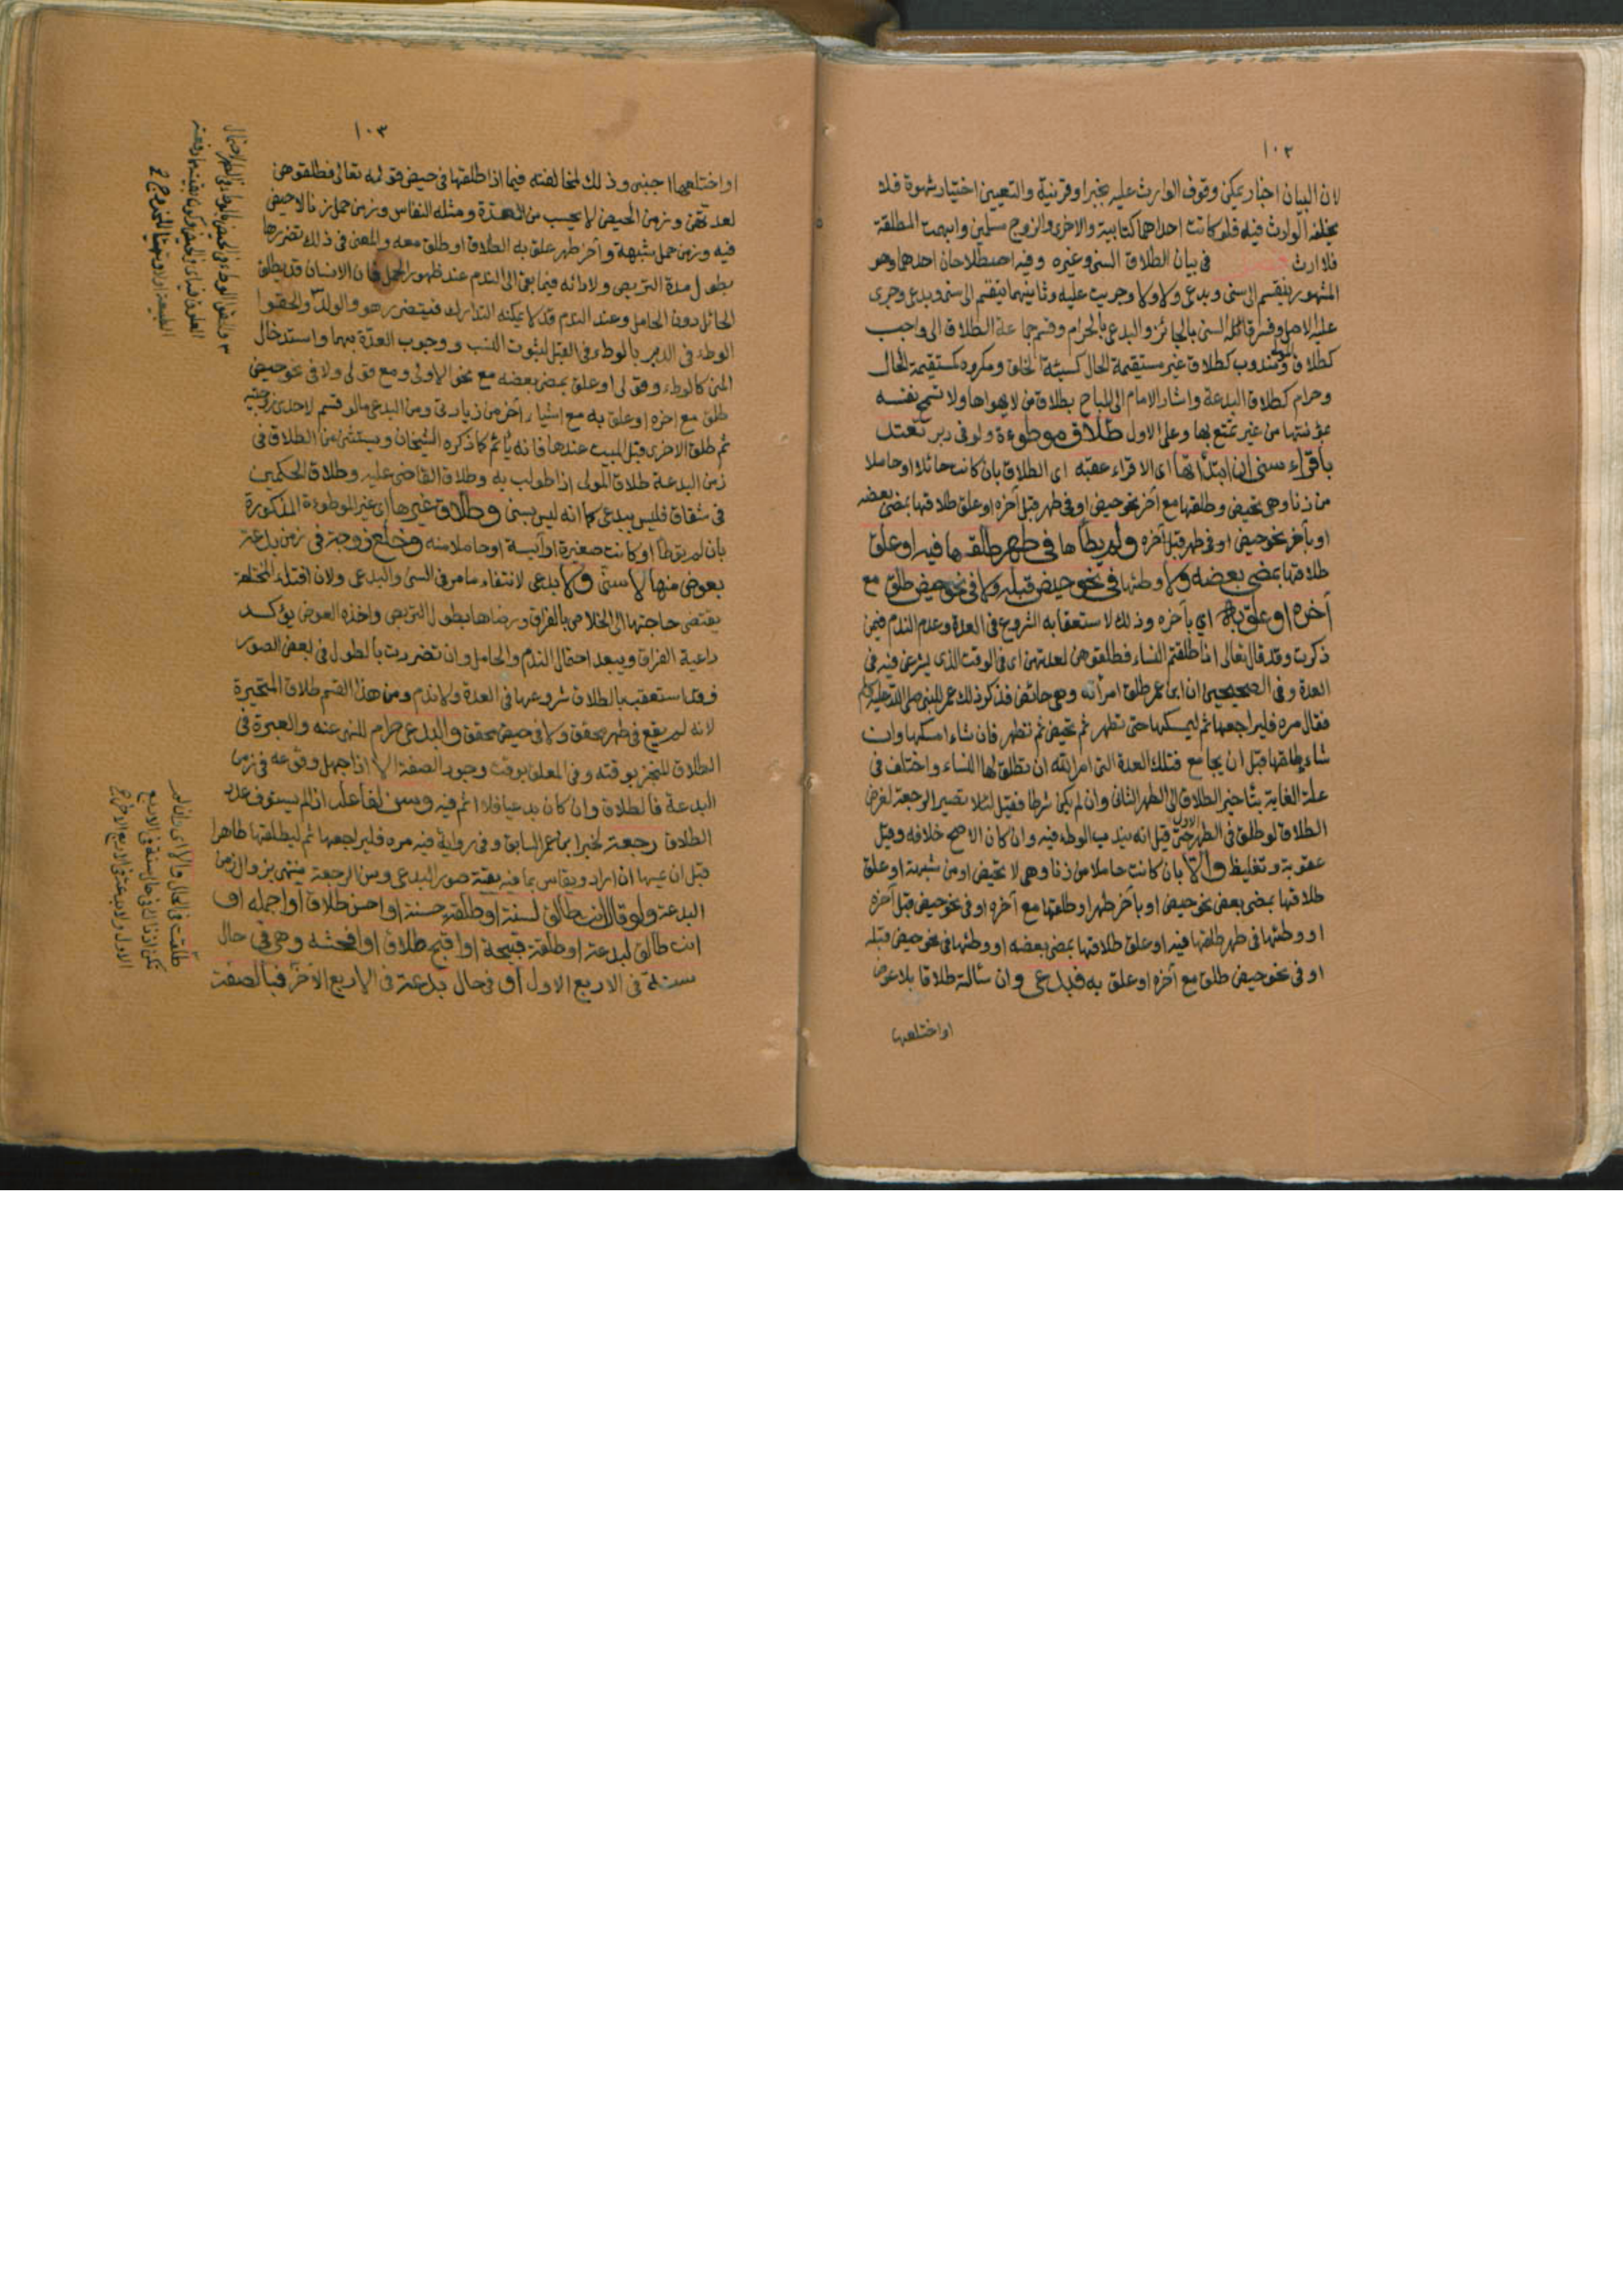 ١٠٢
لان البيان اخبار يمكن وقوف الوارث عليه بخبر او قرينة والتعيين اختيار شهوة فلا
يخلفه الوارث فيه فلو كانت احداهما كتابية والاخرى والزوج مسلمين وابهمت المطلقة
فلا ارث فصل في بيان الطلاق السني وغيره وفيه اصطلاحان احدهما وهو
المشهور ينقسم الى سني وبدعي ولا ولا وجريت عليه وثانيهما ينقسم الى سني وبدعي وجرى
عليه الاصل وفسر قائله السني بالجائز والبدعي بالحرام وقسم جماعة الطلاق الى واجب
كطلاق المولى ومندوب كطلاق غير مستقيمة الحال كسيئة الخلق ومكروه كمستقيمة الحال
وحرام كطلاق البدعة واشار الامام الى المباح بطلاق من لا يهواها ولا تسمح نفسه
بمؤنتها من غير تمتع بها وعلى الاول طلاق موطوءة ولو في دبر تعتد
باقراء سني ان ابتدأتها اي الاقراء عقبه اي الطلاق بان كانت حائلا او حاملا
من زنا وهي تحيض وطلقها مع آخر نحو حيض او في طهر قبل آخره او علق طلاقها بمضي بعضه
او بآخر نحو حيض او في طهر قبل آخره ولم يطأها في طهر طلقها فيه او علق
طلاقها بمضي بعضه ولا وطئها في نحو حيض قبله ولا في نحو حيض طلق مع
آخره او علق به اي بآخره وذلك لاستعقابه الشروع في العدة وعدم الندم فيمن
ذكرت وقد قال تعالى اذا طلقتم النساء فطلقوهن لعدتهن اي في الوقت الذي يشرعن فيه في
العدة وفي الصحيحين ان ابن عمر طلق امرأته وهي حائض فذكر ذلك عمر للنبي صلى الله عليه وسلم
فقال مره فليراجعها ثم ليمسكها حتى تطهر ثم تحيض ثم تطهر فان شاء امسكها وان
شاء طلقها قبل ان يجامع فتلك العدة التي امر الله ان تطلق لها النساء واختلف في
علة الغاية بتأخير الطلاق الى الطهر الثاني وان لم يكن شرطا فقيل لئلا تصير الرجعة لغرض
الطلاق لو طلق في الطهر الاول حتى قيل انه يندب الوطء فيه وان كان الاصح خلافه وقيل
عقوبة وتغليظ والا بان كانت حاملا من زنا وهي لا تحيض او من شبهة او علق
طلاقها بمضي بعض نحو حيض او بآخر طهر او طلقها مع آخره او في نحو حيض قبل آخره
او وطئها في طهر طلقها فيه او علق طلاقها بمضي بعضه او وطئها في نحو حيض قبله
او في نحو حيض طلق مع آخره او علق به فبدعي وان سألته طلاقا بلا عوض
او اختلعها
١٠٣
او اختلعها اجنبي وذلك لمخالفته فيما اذا طلقها في حيض قوله تعالى فطلقوهن
لعدتهن وزمن الحيض لا يحسب من العدة ومثله النفاس وزمن حمل زنا لا حيض
فيه وزمن حمل شبهة وآخر طهر علق به الطلاق او طلق معه والمعنى في ذلك تضررها
بطول مدة التربص ولادائه فيما بقي الى الندم عند ظهور الحمل فان الانسان قد يطلق
الحائل دون الحامل وعند الندم قد لا يمكنه التدارك فيتضرر هو والولد والحقوا
الوطء في الدبر بالوطء في القبل لثبوت النسب ووجوب العدة بهما واستدخال
المني كالوطء وقولي او علق بمضي بعضه مع نحو الاولى ومع قولي ولا في نحو حيض
طلق مع آخره او علق به مع اشياء آخر من زيادتي ومن البدعي ما لو قسم لاحدى زوجتيه
ثم طلق الاخرى قبل المبيت عندها فانه يأثم كما ذكره الشيخان ويستثنى من الطلاق في
زمن البدعة طلاق المولى اذا طولب به وطلاق القاضي عليه وطلاق الحكمين
في شقاق فليس ببدعي كما انه ليس بسني وطلاق غيرها اي غير الموطوءة المذكورة
بان لم توطأ او كانت صغيرة او آيسة او حاملا منه وخلع زوجة في زمن بدعة
بعوض منها لا سني ولا بدعي لانتفاء ما مر في السني والبدعي ولان افتداء المختلعة
يقتضي حاجتها الى الخلاص بالفراق ورضاها بطول التربص واخذه العوض يؤكد
داعية الفراق ويبعد احتمال الندم والحامل وان تضررت بالطول في بعض الصور
فقد استعقب الطلاق شروعها في العدة ولا ندم ومن هذا القسم طلاق المتحيرة
لانه لم يقع في طهر محقق ولا في حيض محقق والبدعي حرام للنهي عنه والعبرة في
الطلاق المنجز بوقته وفي المعلق بوقت وجود الصفة الا اذا جهل وقوعه في زمن
البدعة فالطلاق وان كان بدعيا فلا اثم فيه وسن لفاعله اذا لم يستوف عدد
الطلاق رجعة لخبر ابن عمر السابق وفي رواية فيه مره فليراجعها ثم ليطلقها طاهرا
قبل ان يمسها ان اراد ويقاس بما فيه بقية صور البدعي وسن الرجعة ينتهي بزوال زمن
البدعة ولو قال انت طالق لسنة او طلقة حسنة او احسن طلاق او اجمله او
انت طالق لبدعة او طلقة قبيحة او اقبح طلاق او افحشه وهي في حال
سنة في الاربع الاول او في حال بدعة في الاربع الآخر فبالصفة
طلقت في الحال والا اي وان لم
تكن اذ ذاك في حال سنة في الاربع
الاول ولا بدعة في الاربع الاخر